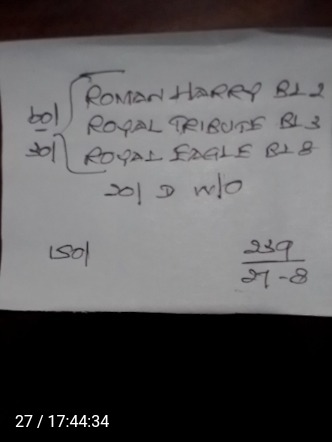 ROMAN HARRY BL 2
60/ ROYAL TRIBUTE BL 3
30/ ROYAL EAGLE BL 8
20/ D W/O
150/
239
27-8
27 / 17:44:34